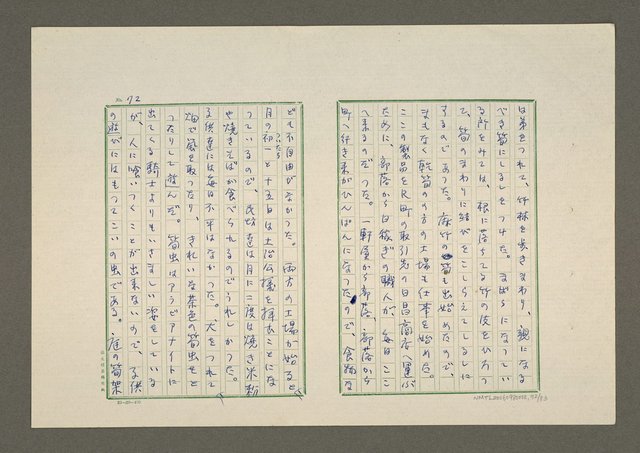 は弟をつれて、竹林を歩きまわり、親になる
べき筍にしるしをつけた。まばらになってい
る所をみては、根に落ちてる竹の皮をひろっ
て、筍のまわりに結びをこしらえてしるしに
するのであった。麻竹の筍も出始めたので、
まもなく乾筍の方の工場も仕事を始めた。
ここの製品をR町の取引先の日昌商店へ運ぶ
ために、部落から日稼ぎの職人が、毎日ここ
へ来るのだった。一軒屋から部落、部落から
町へ行き来がひんぱんになったので、食踏な
No. 72
ども不自由がなかった。両方の工場が始ると、
月の初一と十五日は土治公様を拝むことにな
っているので、民坊達は月に二度は焼き米粉
や焼きそばが食べられるのでうれしかった。
子供達には毎日不平はなかった。犬をつれて
畑で筍を取ったり、きれいな茶色の筍虫をと
ったりして遊んだ。筍虫はアラビアナイトに
出てくる騎士よりもいさましい姿をしている
が、人に喰いつくことが出来ないので、子供
の遊びにはもってこいの虫である。庭の筍架